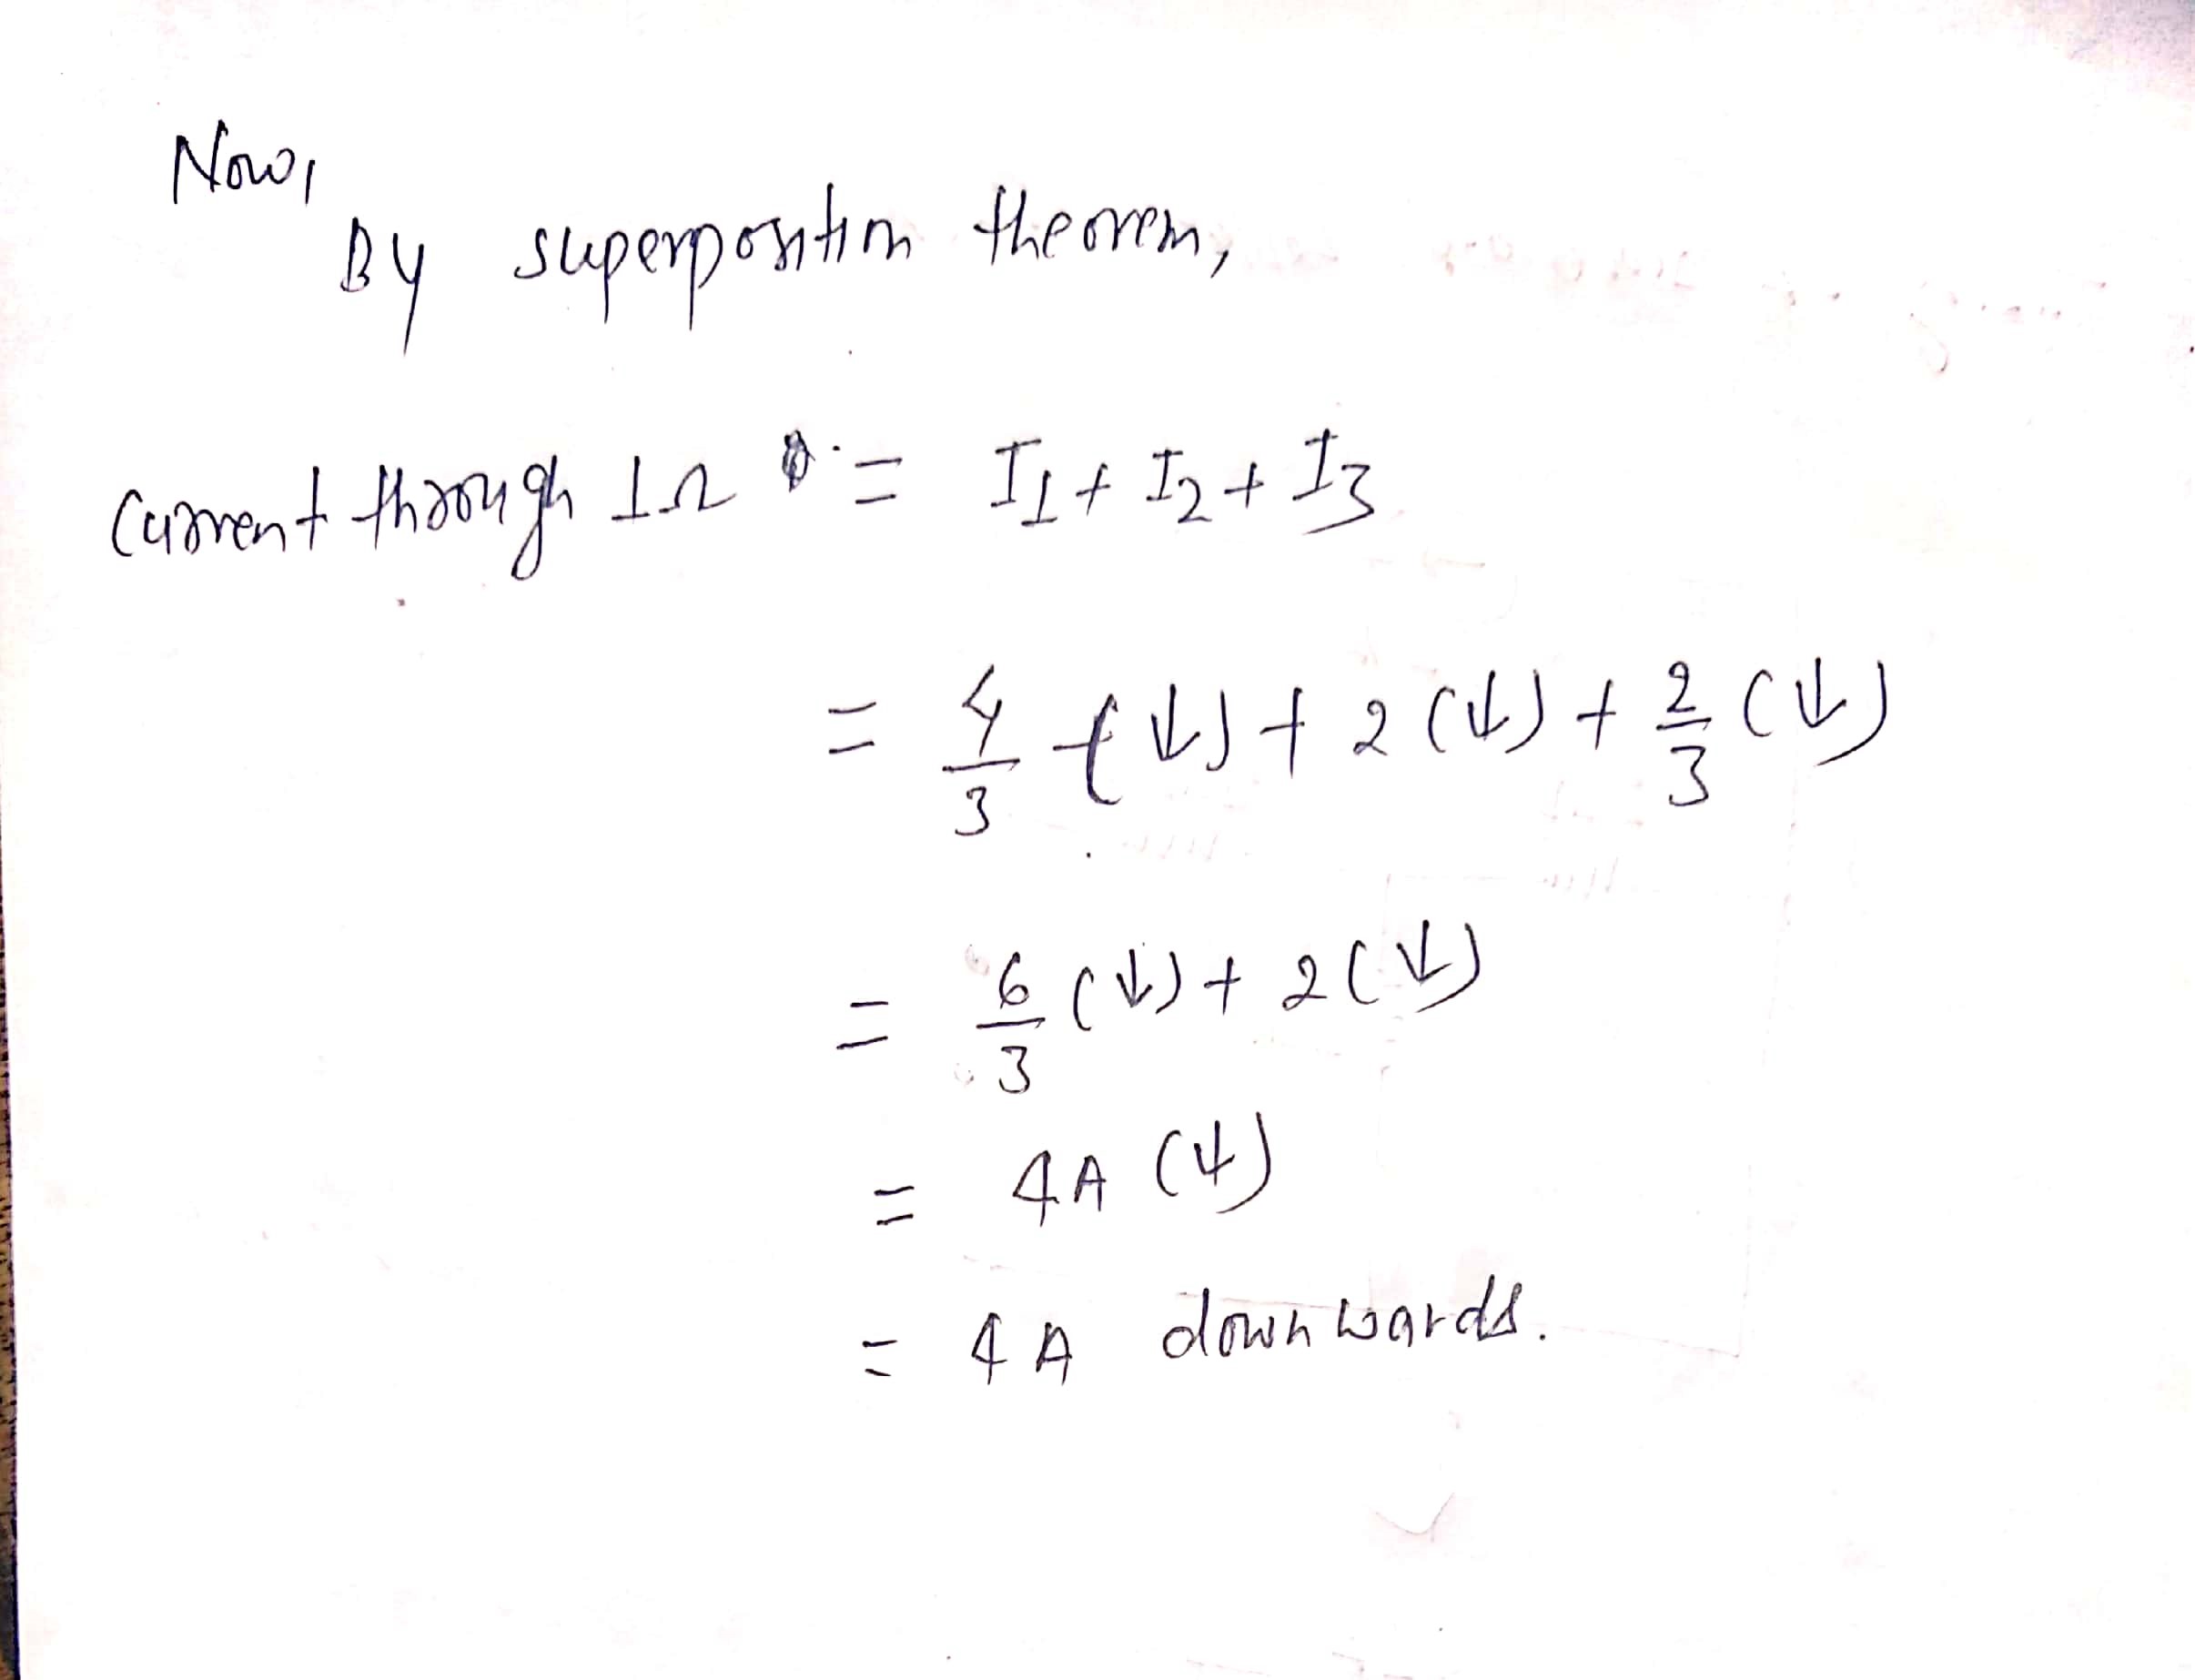 Now,
By superposition theorem,
Current through 1Ω = I1 + I2 + I3
= 4/3 (↓) + 2 (↓) + 2/3 (↓)
= 6/3 (↓) + 2 (↓)
= 4A (↓)
= 4A downwards.